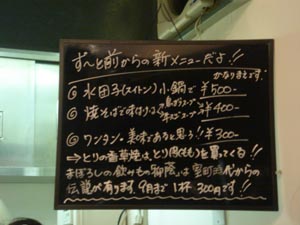 ず〜と前からの新メニューだよ!!
かなりまえです。
◎水団子(スイトン)小鍋で ¥500-
◎焼そばですけど
鳥ダシスープ
¥400-
◎ワンタン。美味であると思う! ¥300-
→とりの香草焼は、とり(ももも)を買ってくる!!
まぼろしの飲みもの柳陰は室町時代からの
伝統が有ります。9月まで1杯300円です!!